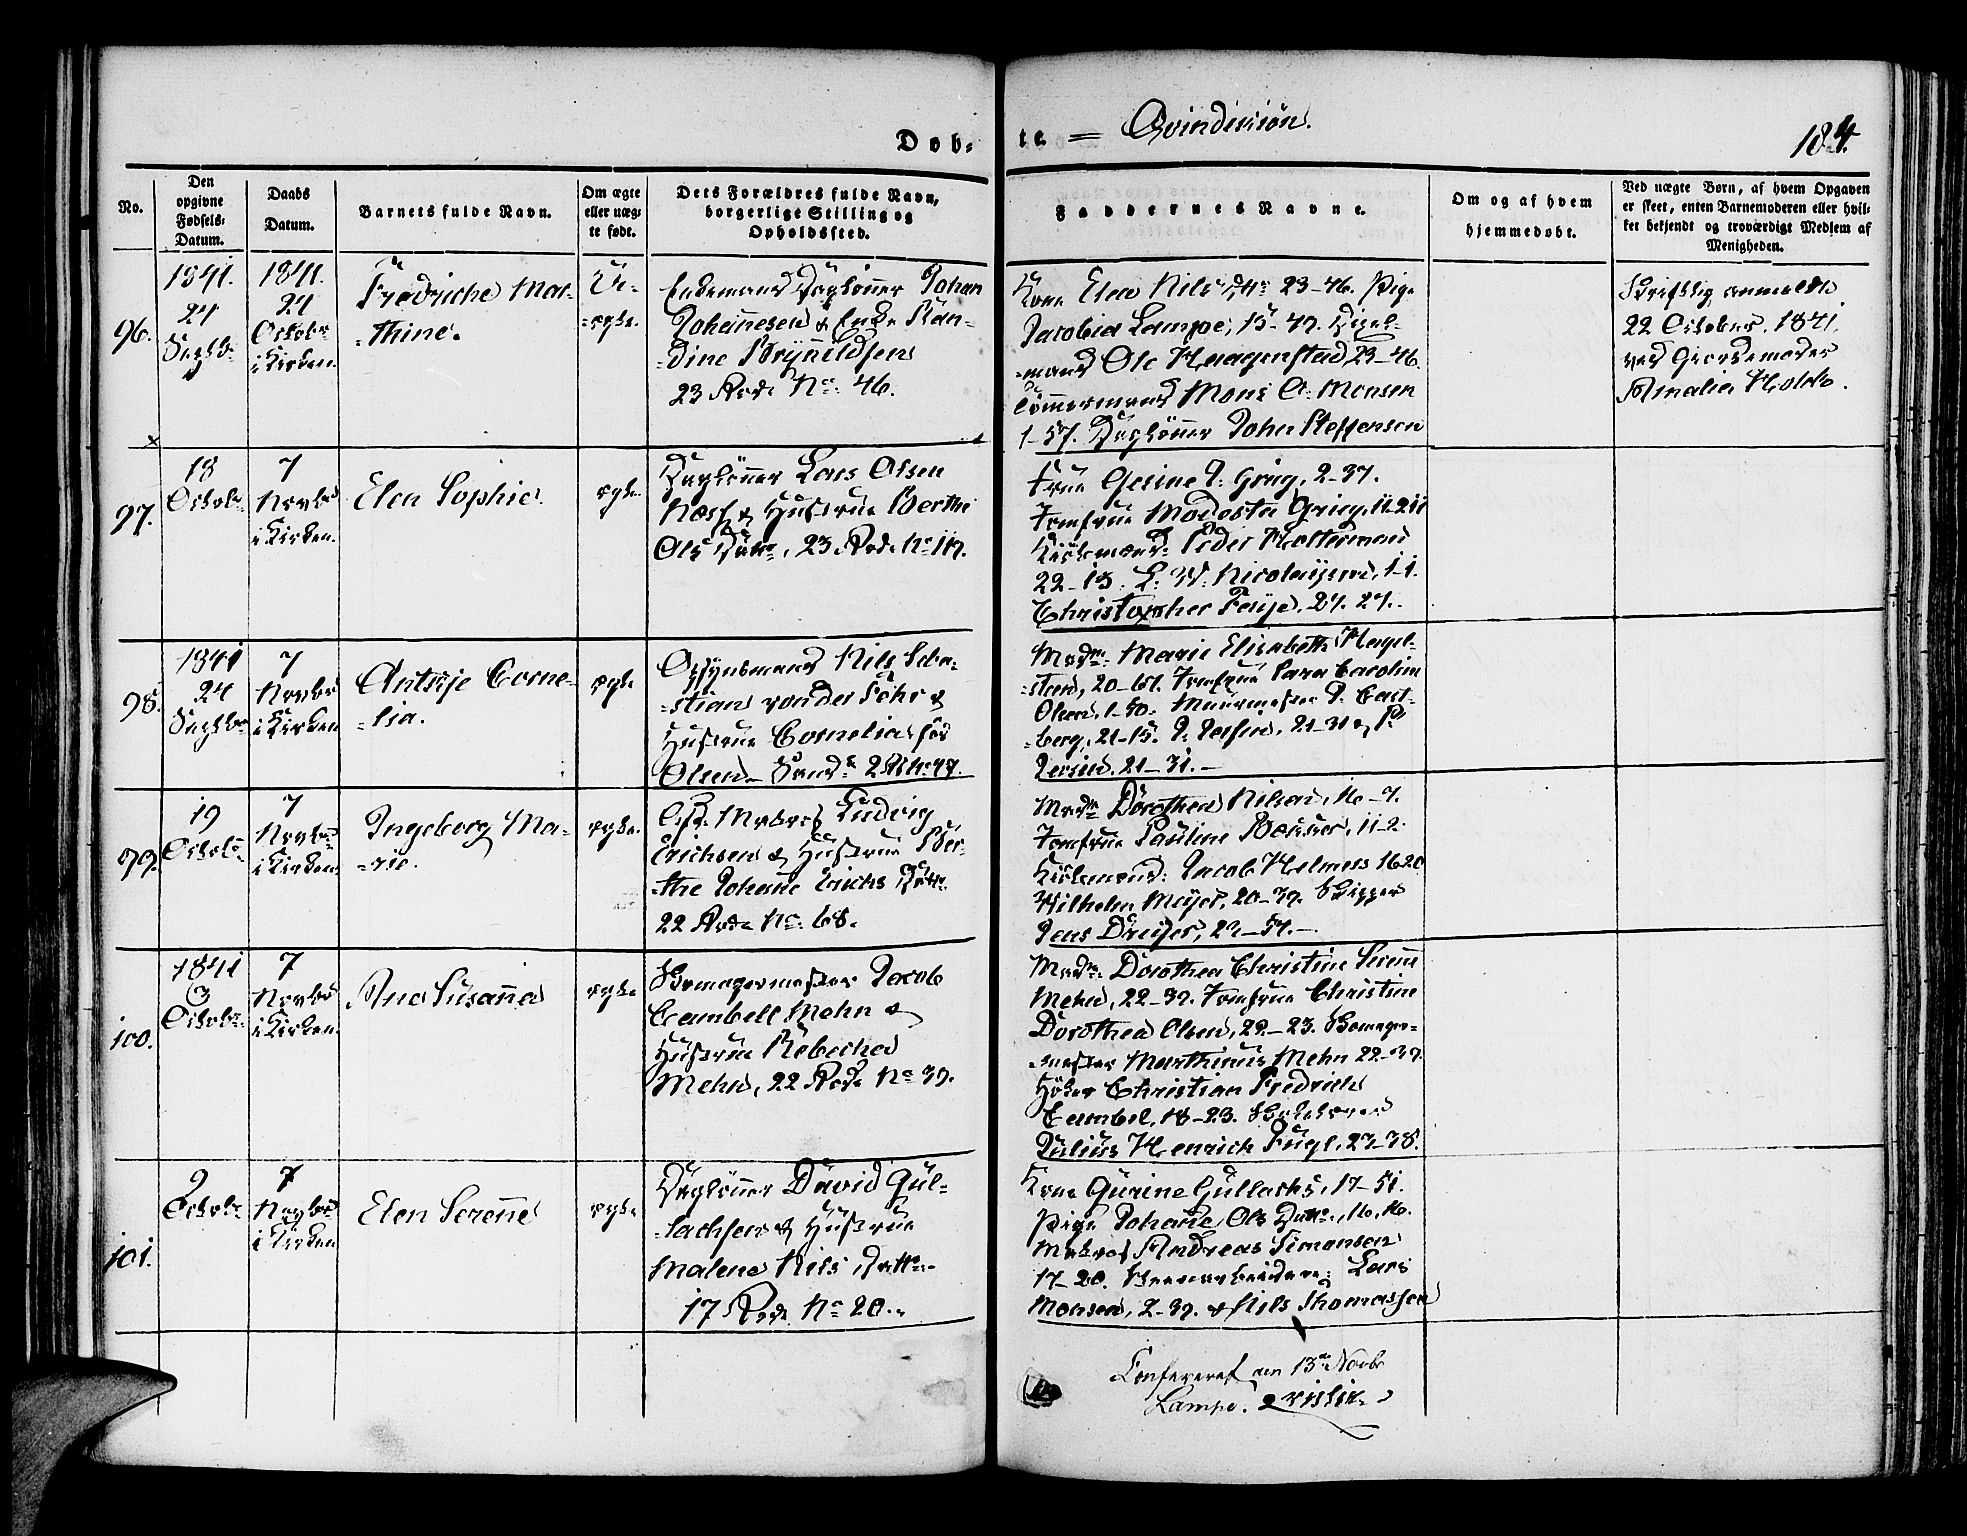 Døb-
te = Qvindekiøn.
184.
No.
Den opgivne Fødsels-Datum.
Daabs Datum.
Barnets fulde Navn.
Om ægte eller uæg-te født.
Dets Forældres fulde Navn, borgerlige Stilling og Opholdssted.
Faddernes Navne.
Om og af hvem hjemmedøbt.
Ved uægte Børn, af hvem Opgaven er skeet, enten Barnemoderen eller hvil-ket bekjendt og troværdigt Medlem af Menigheden.
96.
1841.
24
Septb.
1841.
24
October
i Kirken.
Fredriche Mat-
-thine.
Ui-
-ægte.
Dagløner Johan
Johannesen & Enke Ran-
-dine Brynildsen
23 Rode No. 46.
Kone Elen Nils Dtr 23-46. Pige
Jacobia Lampe, 15-49.
-mand Ole Haagenstad 23-46.
Tømmermand Mons O. Monsen
1-57. Dagløner Johan Steffensen
Skriftlig anmeldt
22 October 1841.
ved Giordemoder
Amalia Holck.
97.
18
Octob.
7
Novbr
i Kirken.
Elen Sophie.
ægte
Dagløner Lars Olsen
Næss & Hustrue Berthe
Ols Datter, 23 Rode No.
Frue Gesine J. Grieg, 2-37.
Jomfrue Modesta Grieg, 11-211
Kiøbmænd: Peder Kolterman
22-13. L. W. Nicolaysen, 1-1.
Christopher Faye, 24. 24.
98.
1841
24
Septbr
7
Novbr
i Kirken
Antonje Corne-
-lia.
ægte
Opsynsmand Nils Seba-
-stian von der Fehr &
Hustrue Cornelia fød
Olsen
Madm. Marie Elisabeth Hagel-
-steen, 20-61. Jomfrue Sara Caroline
Olsen, 1-50. Muurmester P. East-
-berg, 21-15. 21-31 & P.
21-31.-
99.
19
Octob.
7
Novbr
i Kirken.
Ingeborg Ma-
-rie.
ægte.
Matros Ludvig
Erichsen & Hustrue Ber-
-the Johanne Erichs Datter
22 Rode No. 68.
Madm Dorothea Nilsen, 16-7.
Jomfrue Pauline Bøhmer, 11-2.
Kiøbmænd: Jacob Helmers 16 20
Wilhelm Meyer, 20-39. Skipper
Jens Dreyer, 22-54.-
100.
1841
3
Octobr.
7
Novbr
i Kirken.
Ane Susanna
ægte
Skomagermester Jacob
Cambell Mehn &
Hustrue Rebecha
Mehn, 22 Rode No 39.
Madm. Dorothea Christine Serene
Mehn, 22-39. Jomfrue Christine
Dorothea Olsen, 22-23. Skomager-
-mester Marthinus Mehn 22-39.
Høker Christian Fredrich
Cambel, 18-23.
Julius Henrich Fugl, 23-38.
101.
9
Octob.
7
Novbr
i Kirken
Elen Serenne
ægte
Dagløner David Gul-
-lachsen & Hustrue
Malene Nils Datter
17 Rode No 20.
Kone Gurine Gullachs, 17-51.
Pige Johanne Ols Datter, 16, 16.
Matros Andreas Simonsen
17-20. Lars
Monsen, 2-39. & Nils Thomassen
Confereret den 13de Novbr
Lampe.